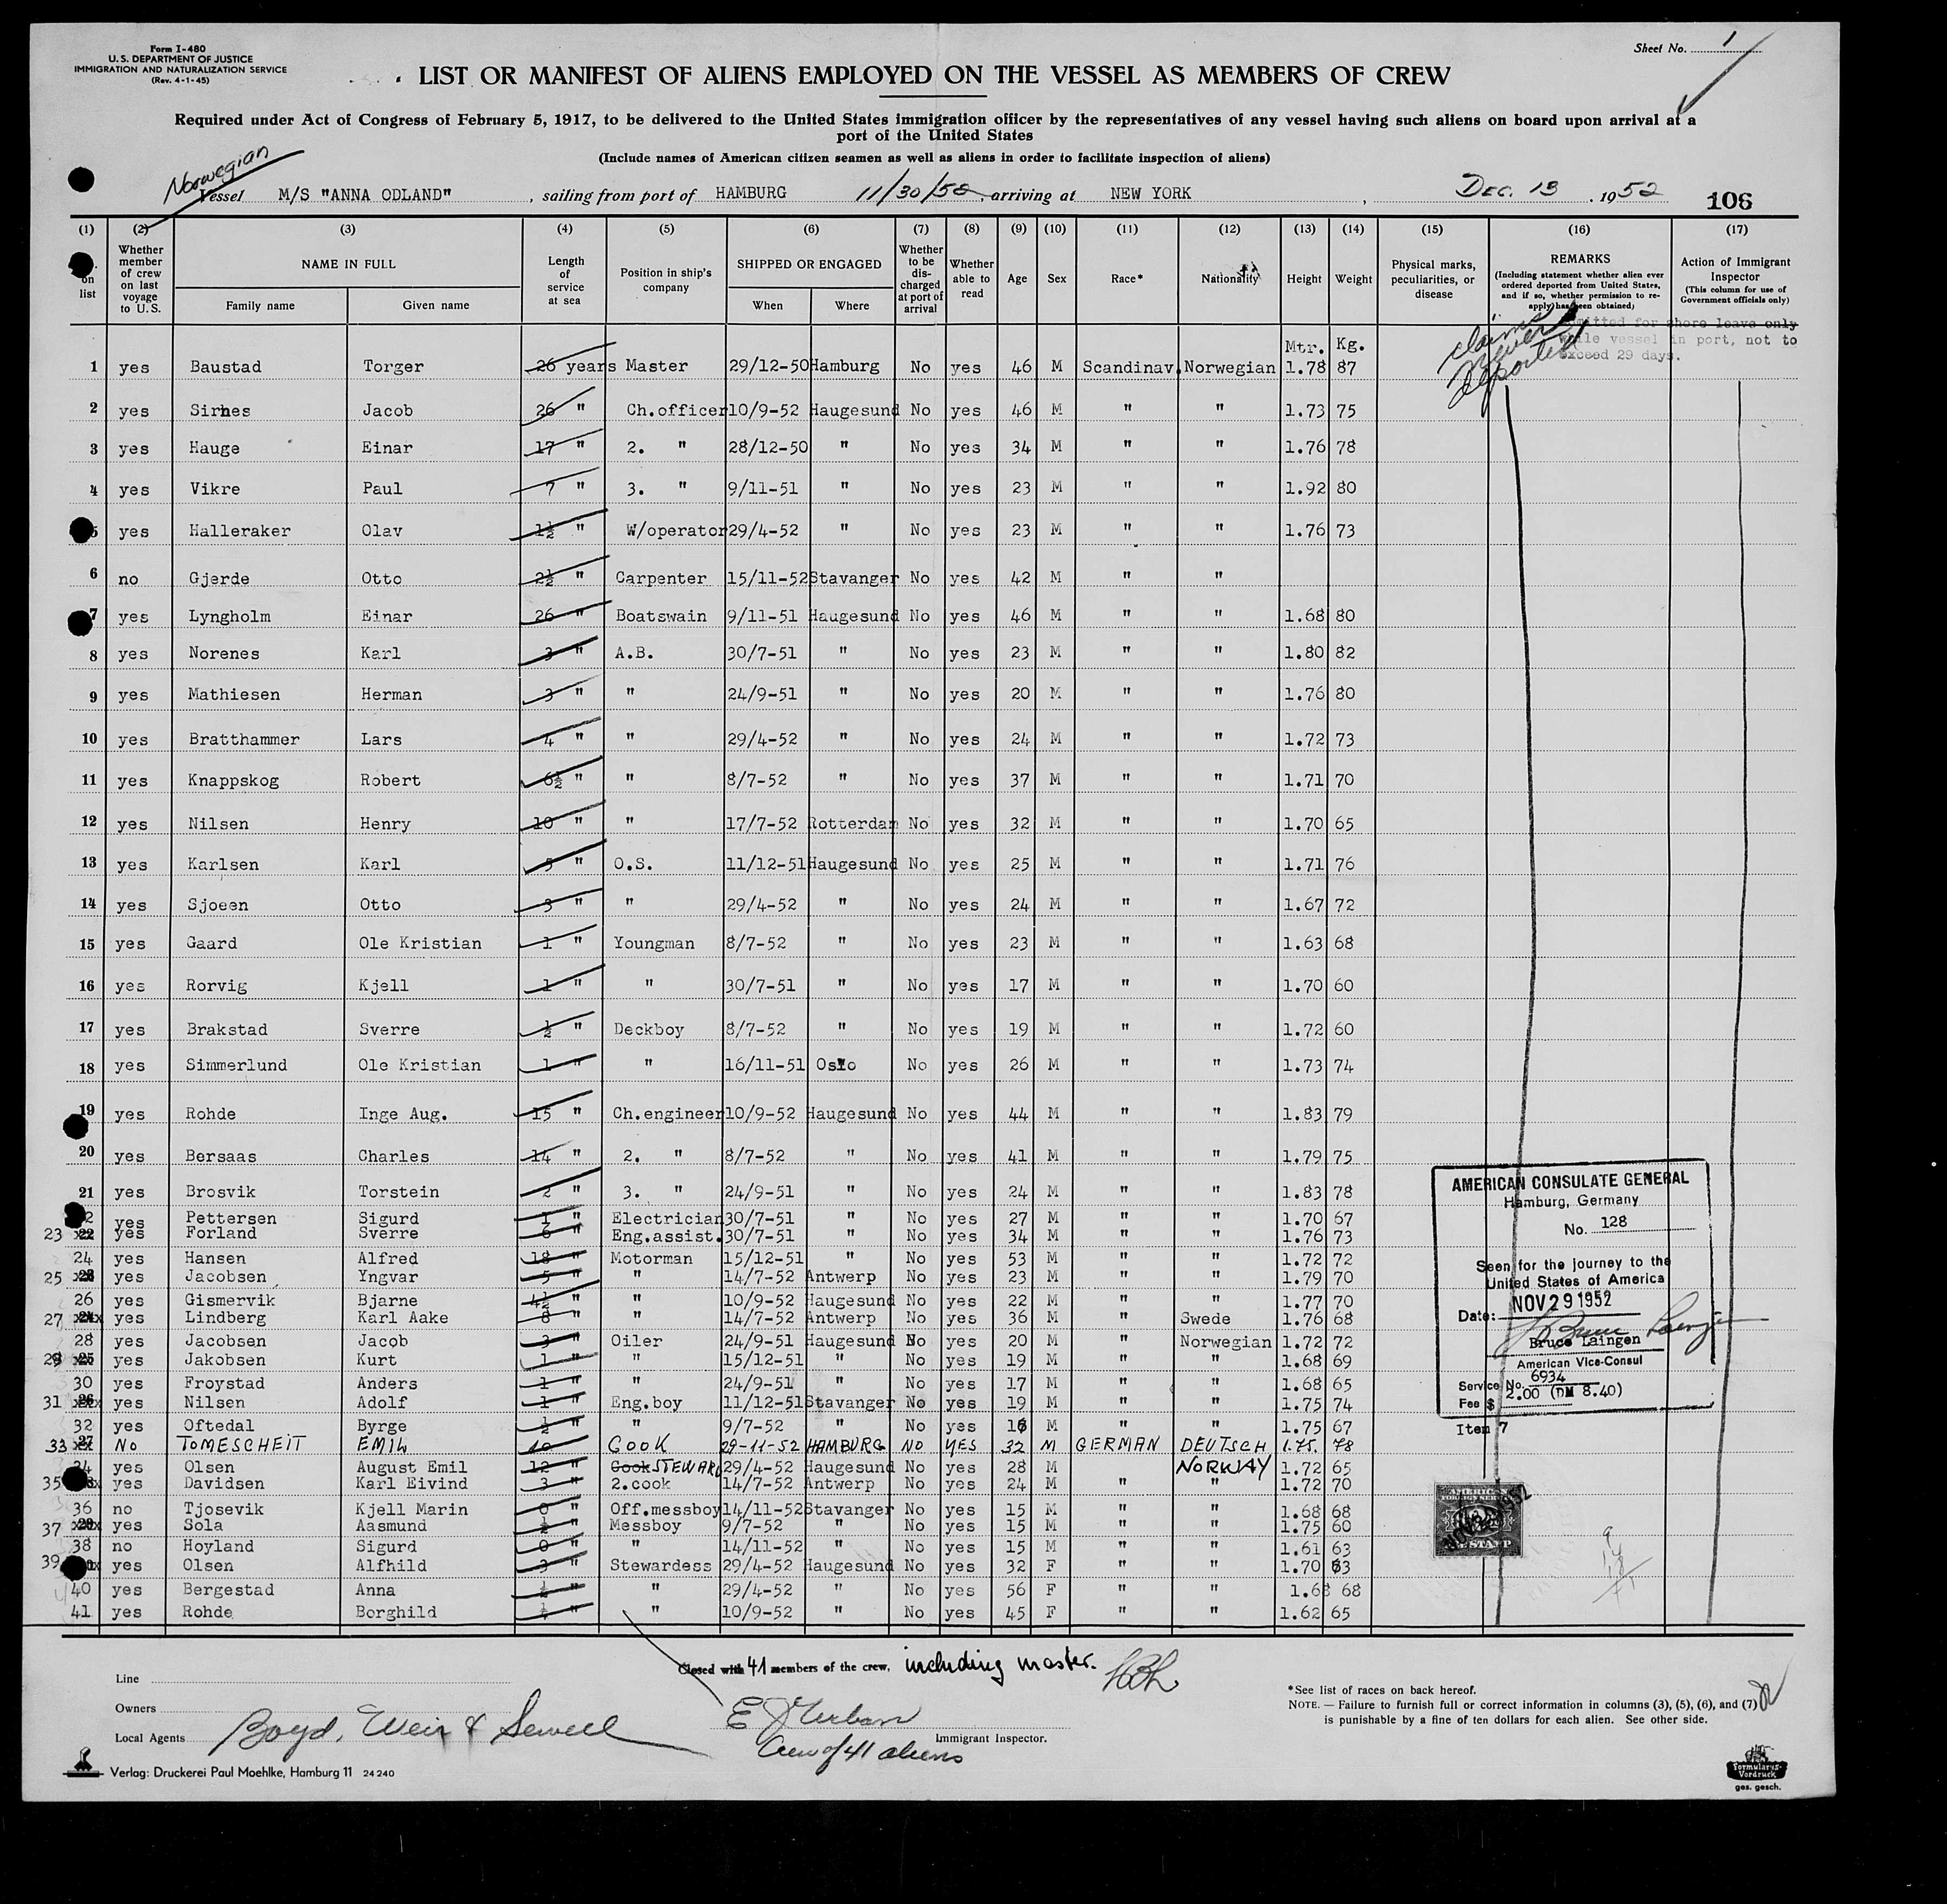 Form I-480
U.S. DEPARTMENT OF JUSTICE
IMMIGRATION AND NATURALIZATION SERVICE
(Rev. 4-1-45)
Sheet No. 1
LIST OR MANIFEST OF ALIENS EMPLOYED ON THE VESSEL AS MEMBERS OF CREW
Required under Act of Congress of February 5, 1917, to be delivered to the United States immigration officer by the representatives of any vessel having such aliens on board upon arrival at a
port of the United States
(Include names of American citizen seamen as well as aliens in order to facilitate inspection of aliens)
Norwegian
Vessel M/S "ANNA ODLAND", sailing from port of HAMBURG 11/30/52, arriving at NEW YORK, Dec. 13, 1952 106
(1) (2) (3) (4) (5) (6) (7) (8) (9) (10) (11) (12) (13) (14) (15) (16) (17)
No. on list Whether member of crew on last voyage to U.S. NAME IN FULL Family name Given name Length of service at sea Position in ship's company SHIPPED OR ENGAGED When Where Whether to be discharged at port of arrival Whether able to read Age Sex Race* Nationality Height Weight Physical marks, peculiarities, or disease REMARKS (Including statement whether alien ever ordered deported from United States, and if so, whether permission to re-apply has been obtained) Action of Immigrant Inspector (This column for use of Government officials only)
claims never deported
admitted for shore leave only
while vessel in port, not to
exceed 29 days.
Mtr. Kg.
1 yes Baustad Torger 26 years Master 29/12-50 Hamburg No yes 46 M Scandinav. Norwegian 1.78 87
2 yes Sirnes Jacob 26 " Ch.officer 10/9-52 Haugesund No yes 46 M " " 1.73 75
3 yes Hauge Einar 17 " 2. " 28/12-50 " No yes 34 M " " 1.76 78
4 yes Vikre Paul 7 " 3. " 9/11-51 " No yes 23 M " " 1.92 80
5 yes Halleraker Olav 1½ " W/operator 29/4-52 " No yes 23 M " " 1.76 73
6 no Gjerde Otto 2½ " Carpenter 15/11-52 Stavanger No yes 42 M " "
7 yes Lyngholm Einar 26 " Boatswain 9/11-51 Haugesund No yes 46 M " " 1.68 80
8 yes Norenes Karl 3 " A.B. 30/7-51 " No yes 23 M " " 1.80 82
9 yes Mathiesen Herman 3 " " 24/9-51 " No yes 20 M " " 1.76 80
10 yes Bratthammer Lars 4 " " 29/4-52 " No yes 24 M " " 1.72 73
11 yes Knappskog Robert 6½ " " 8/7-52 " No yes 37 M " " 1.71 70
12 yes Nilsen Henry 10 " " 17/7-52 Rotterdam No yes 32 M " " 1.70 65
13 yes Karlsen Karl 5 " O.S. 11/12-51 Haugesund No yes 25 M " " 1.71 76
14 yes Sjoeen Otto 3 " " 29/4-52 " No yes 24 M " " 1.67 72
15 yes Gaard Ole Kristian 1 " Youngman 8/7-52 " No yes 23 M " " 1.63 68
16 yes Rorvig Kjell 1 " " 30/7-51 " No yes 17 M " " 1.70 60
17 yes Brakstad Sverre ½ " Deckboy 8/7-52 " No yes 19 M " " 1.72 60
18 yes Simmerlund Ole Kristian 1 " " 16/11-51 Oslo No yes 26 M " " 1.73 74
19 yes Rohde Inge Aug. 15 " Ch.engineer 10/9-52 Haugesund No yes 44 M " " 1.83 79
20 yes Bersaas Charles 14 " 2. " 8/7-52 " No yes 41 M " " 1.79 75
21 yes Brosvik Torstein 2 " 3. " 24/9-51 " No yes 24 M " " 1.83 78
22 yes Pettersen Sigurd 1 " Electrician 30/7-51 " No yes 27 M " " 1.70 67
23 yes Forland Sverre 6 " Eng.assist. 30/7-51 " No yes 34 M " " 1.76 73
24 yes Hansen Alfred 18 " Motorman 15/12-51 " No yes 53 M " " 1.72 72
25 yes Jacobsen Yngvar 5 " " 14/7-52 Antwerp No yes 23 M " " 1.79 70
26 yes Gismervik Bjarne 4½ " " 10/9-52 Haugesund No yes 22 M " " 1.77 70
27 yes Lindberg Karl Aake 8 " " 14/7-52 Antwerp No yes 36 M " Swede 1.76 68
28 yes Jacobsen Jacob 3 " Oiler 24/9-51 Haugesund No yes 20 M " Norwegian 1.72 72
29 yes Jakobsen Kurt 1 " " 15/12-51 " No yes 19 M " " 1.68 69
30 yes Froystad Anders 1 " " 24/9-51 " No yes 17 M " " 1.68 65
31 yes Nilsen Adolf 1 " Eng.boy 11/12-51 Stavanger No yes 19 M " " 1.75 74
32 yes Oftedal Byrge ½ " " 9/7-52 " No yes 16 M " " 1.75 67
33 NO TOMESCHEIT EMIL 10 " COOK 29-11-52 HAMBURG NO YES 32 M GERMAN DEUTSCH 1.75. 78
34 yes Olsen August Emil 12 " Cook STEWARD 29/4-52 Haugesund No yes 28 M NORWAY 1.72 65
35 yes Davidsen Karl Eivind 3 " 2.cook 14/7-52 Antwerp No yes 24 M " " 1.72 70
36 no Tjosevik Kjell Marin 0 " Off.messboy 14/11-52 Stavanger No yes 15 M " " 1.68 68
37 yes Sola Aasmund ½ " Messboy 9/7-52 " No yes 15 M " " 1.75 60
38 no Hoyland Sigurd 0 " " 14/11-52 " No yes 15 M " " 1.61 63
39 yes Olsen Alfhild 3 " Stewardess 29/4-52 Haugesund No yes 32 F " " 1.70 63
40 yes Bergestad Anna ½ " " 29/4-52 " No yes 56 F " " 1.68 68
41 yes Rohde Borghild " " 10/9-52 " No yes 45 F " " 1.62 65
AMERICAN CONSULATE GENERAL
Hamburg, Germany
No. 128
Seen for the journey to the
United States of America
Date: NOV 29 1952
Bruce Laingen
American Vice-Consul
Service No. 6934
Fee $ 2.00 (DM 8.40)
Item 7
Closed with 41 members of the crew, including master.
Line
Owners
Local Agents Boyd, Weir & Sewell
Immigrant Inspector.
Crew of 41 aliens
*See list of races on back hereof.
NOTE. — Failure to furnish full or correct information in columns (3), (5), (6), and (7)
is punishable by a fine of ten dollars for each alien. See other side.
Verlag: Druckerei Paul Moehlke, Hamburg 11 24 240
Formulars-
Vordruck
ges. gesch.